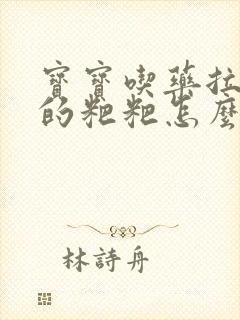 寶寶喫藥拉
的粑粑怎麼
林詩舟